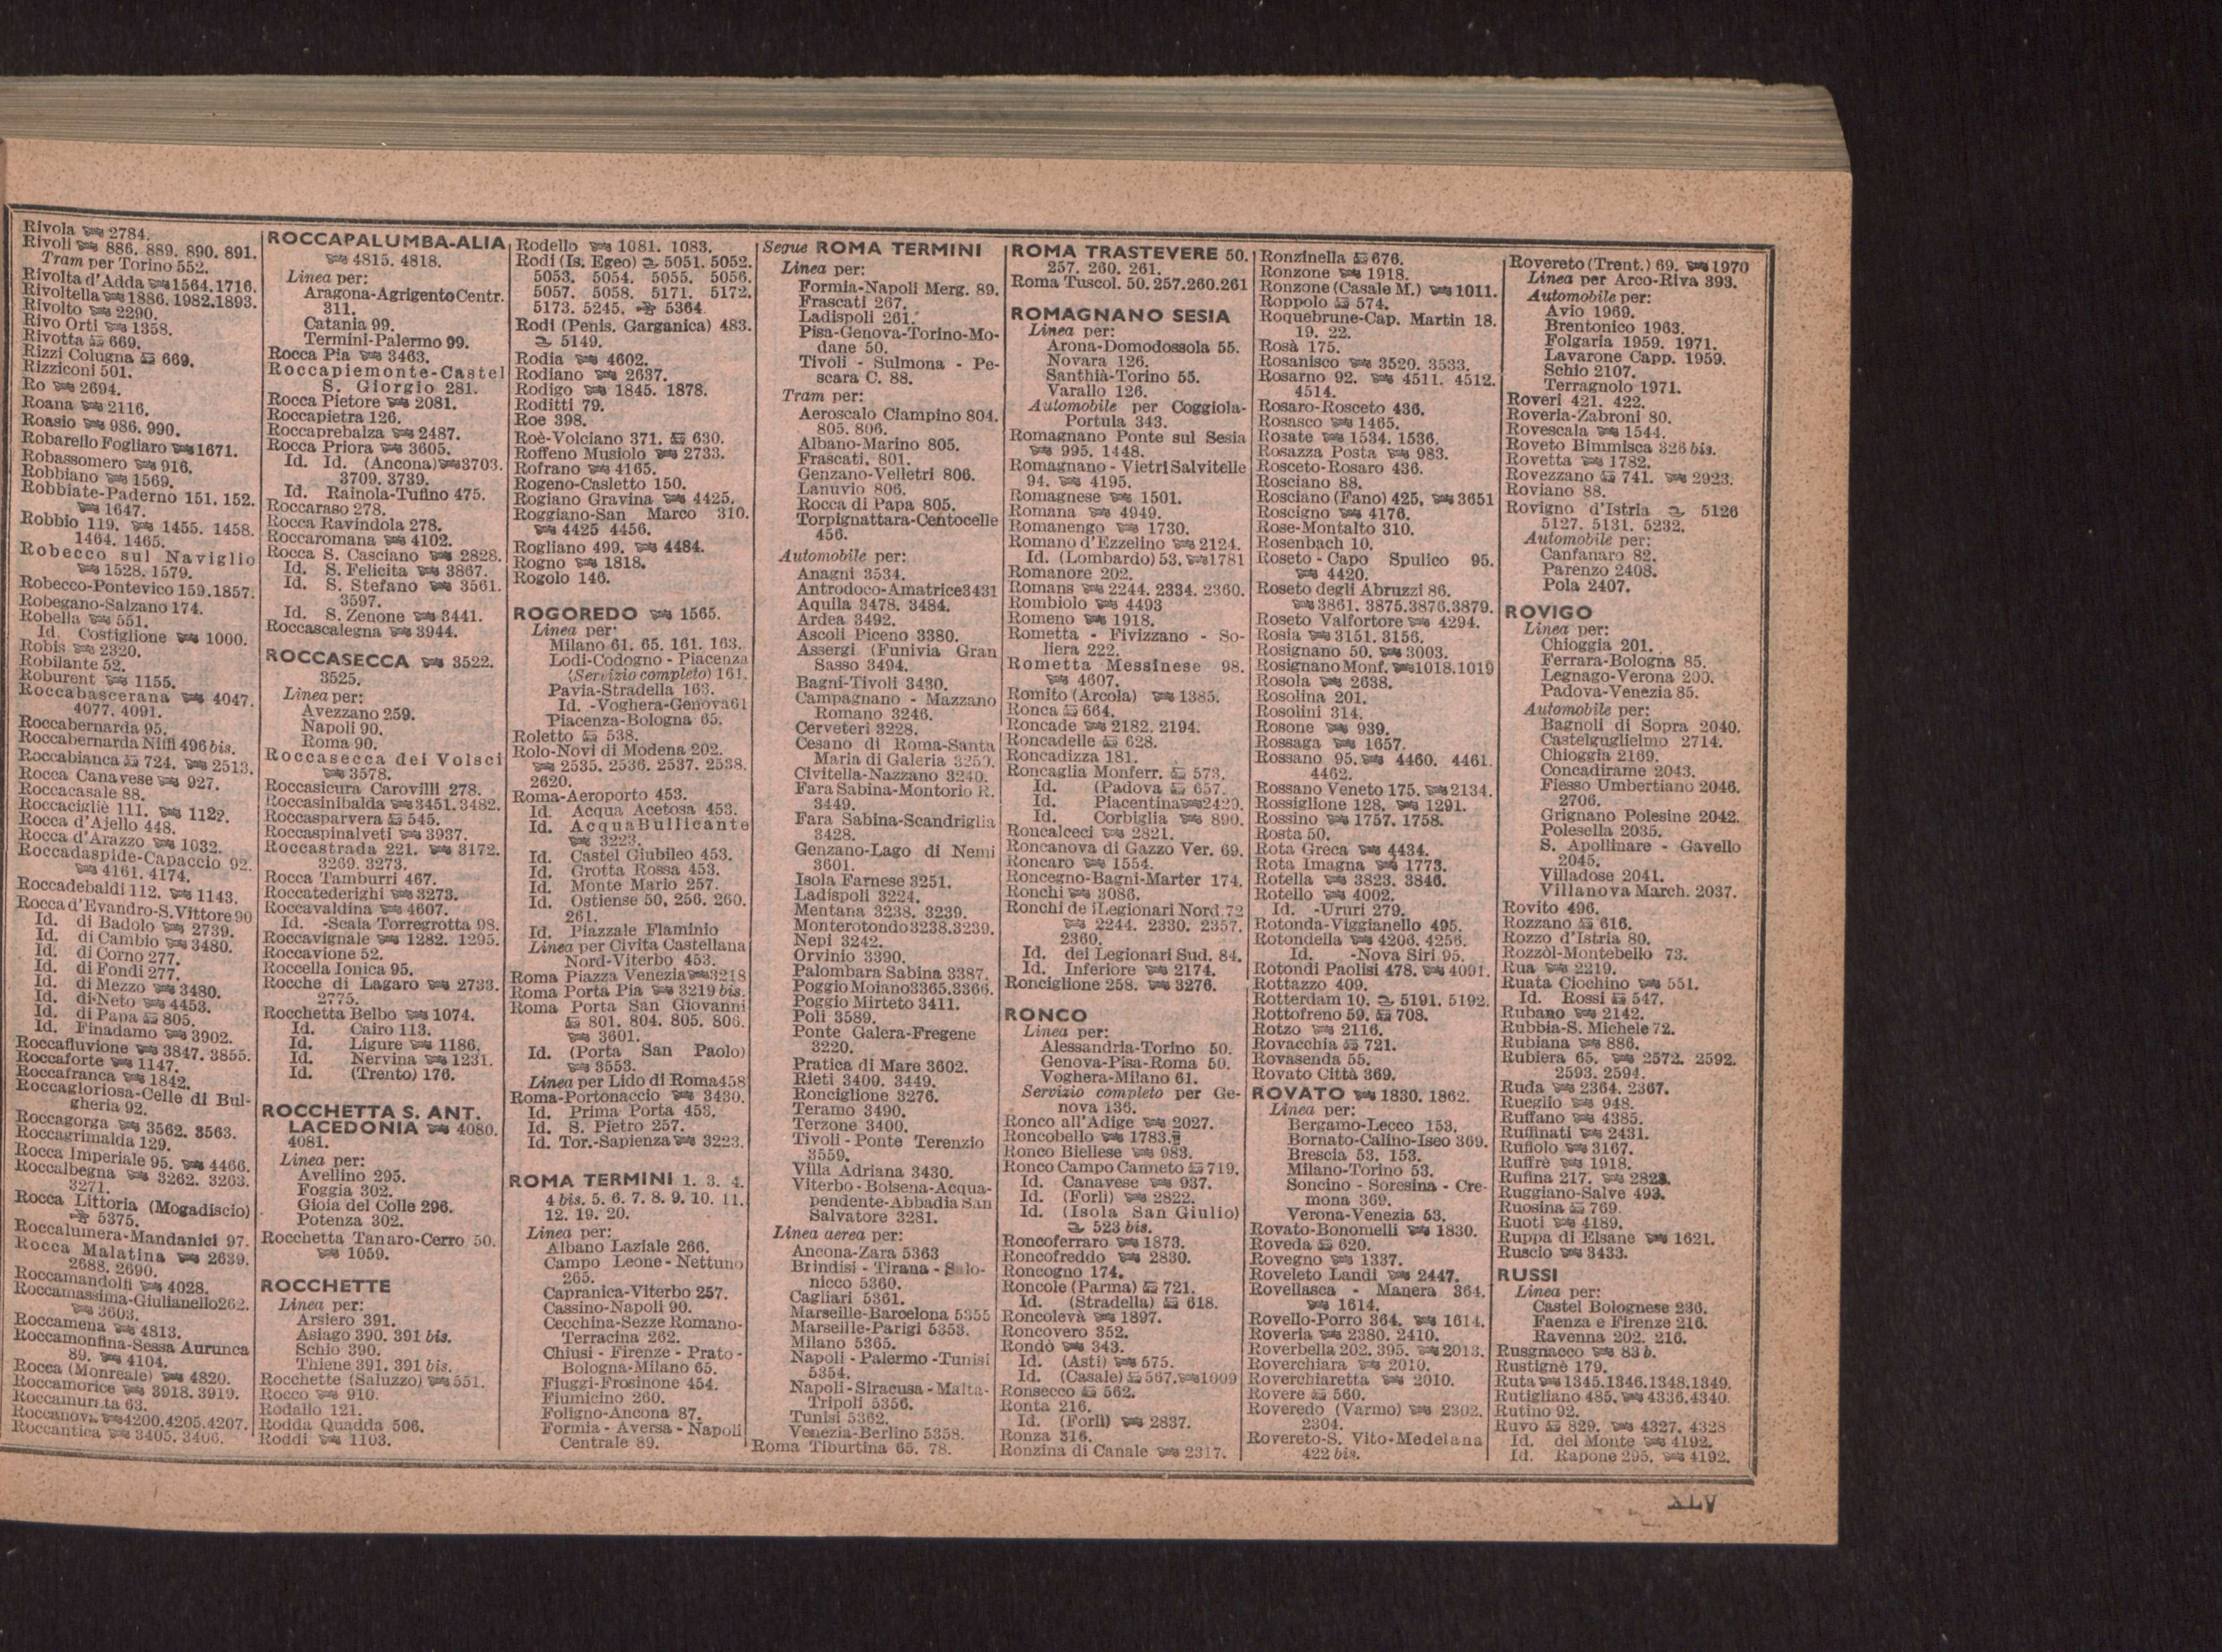 Rivola 2784.
Rivoli 886. 889. 890. 891.
Tram per Torino 552.
Rivolta d'Adda 1564.1716.
Rivoltella 1886. 1982.1893.
Rivolto 2290.
Rivo Orti 1358.
Rivotta 669.
Rizzi Colugna 669.
Rizziconi 501.
Ro 2694.
Roana 2116.
Roasio 986. 990.
Robarello Fogliaro 1671.
Robassomero 916.
Robbiano 1569.
Robbiate-Paderno 151. 152.
1647.
Robbio 119. 1455. 1458.
1464. 1465.
Robecco sul Naviglio
1528. 1579.
Robecco-Pontevico 159.1857.
Robegano-Salzano 174.
Robella 551.
Id. Costiglione 1000.
Robis 2320.
Robilante 52.
Roburent 1155.
Roccabascerana 4047.
4077. 4091.
Roccabernarda 95.
Roccabernarda Niffi 496 bis.
Roccabianca 724. 2513.
Rocca Canavese 927.
Roccacasale 88.
Roccacigliè 111. 1122.
Rocca d'Ajello 448.
Rocca d'Arazzo 1032.
Roccadaspide-Capaccio 92.
4161. 4174.
Roccadebaldi 112. 1143.
Rocca d'Evandro-S.Vittore 90
Id. di Badolo 2739.
Id. di Cambio 3480.
Id. di Corno 277.
Id. di Fondi 277.
Id. di Mezzo 3480.
Id. di Neto 4453.
Id. di Papa 805.
Id. Finadamo 3902.
Roccafluvione 3847. 3855.
Roccaforte 1147.
Roccafranca 1842.
Roccagloriosa-Celle di Bul-
gheria 92.
Roccagorga 3562. 3563.
Roccagrimalda 129.
Rocca Imperiale 95. 4466.
Roccalbegna 3262. 3263.
3271.
Rocca Littoria (Mogadiscio)
5375.
Roccalumera-Mandanici 97.
Rocca Malatina 2639.
2688. 2690.
Roccamandolfi 4028.
Roccamassima-Giulianello262.
3603.
Roccamena 4813.
Roccamonfina-Sessa Aurunca
89. 4104.
Rocca (Monreale) 4820.
Roccamorice 3918. 3919.
Roccamurata 63.
Roccanova 4200.4205.4207.
Roccantica 3405. 3406.
ROCCAPALUMBA-ALIA
4815. 4818.
Linea per:
Aragona-Agrigento Centr.
311.
Catania 99.
Termini-Palermo 99.
Rocca Pia 3463.
Roccapiemonte-Castel
S. Giorgio 281.
Rocca Pietore 2081.
Roccapietra 126.
Roccaprebalza 2487.
Rocca Priora 3605.
Id. Id. (Ancona) 3703.
3709. 3739.
Id. Rainola-Tufino 475.
Roccaraso 278.
Rocca Ravindola 278.
Roccaromana 4102.
Rocca S. Casciano 2828.
Id. S. Felicita 3867.
Id. S. Stefano 3561.
3597.
Id. S. Zenone 3441.
Roccascalegna 3944.
ROCCASECCA 3522.
3525.
Linea per:
Avezzano 259.
Napoli 90.
Roma 90.
Roccasecca dei Volsci
3578.
Roccasicura Carovilli 278.
Roccasinibalda 3451. 3482.
Roccasparvera 545.
Roccaspinalveti 3937.
Roccastrada 221. 3172.
3269. 3273.
Rocca Tamburri 467.
Roccatederighi 3273.
Roccavaldina 4607.
Id. -Scala Torregrotta 98.
Roccavignale 1282. 1295.
Roccavione 52.
Roccella Ionica 95.
Rocche di Lagaro 2733.
2775.
Rocchetta Belbo 1074.
Id. Cairo 113.
Id. Ligure 1186.
Id. Nervina 1231.
Id. (Trento) 176.
ROCCHETTA S. ANT.
LACEDONIA 4080.
4081.
Linea per:
Avellino 295.
Foggia 302.
Gioia del Colle 296.
Potenza 302.
Rocchetta Tanaro-Cerro 50.
1059.
ROCCHETTE
Linea per:
Arsiero 391.
Asiago 390. 391 bis.
Schio 390.
Thiene 391. 391 bis.
Rocchette (Saluzzo) 551.
Rocco 910.
Rodallo 121.
Rodda Quadda 506.
Roddi 1103.
Rodello 1081. 1083.
Rodi (Is. Egeo) 5051. 5052.
5053. 5054. 5055. 5056.
5057. 5058. 5171. 5172.
5173. 5245. 5364.
Rodi (Penis. Garganica) 483.
5149.
Rodia 4602.
Rodiano 2637.
Rodigo 1845. 1878.
Roditti 79.
Roe 398.
Roè-Volciano 371. 630.
Roffeno Musiolo 2733.
Rofrano 4165.
Rogeno-Casletto 150.
Rogiano Gravina 4425.
Roggiano-San Marco 310.
4425 4456.
Rogliano 499. 4484.
Rogno 1818.
Rogolo 146.
ROGOREDO 1565.
Linea per:
Milano 61. 65. 161. 163.
Lodi-Codogno - Piacenza
(Servizio completo) 161.
Pavia-Stradella 163.
Id. -Voghera-Genova61
Piacenza-Bologna 65.
Roletto 538.
Rolo-Novi di Modena 202.
2535. 2536. 2537. 2538.
2620.
Roma-Aeroporto 453.
Id. Acqua Acetosa 453.
Id. Acqua Bullicante
3223.
Id. Castel Giubileo 453.
Id. Grotta Rossa 453.
Id. Monte Mario 257.
Id. Ostiense 50. 256. 260.
261.
Id. Piazzale Flaminio
Linea per Civita Castellana
Nord-Viterbo 453.
Roma Piazza Venezia 3218
Roma Porta Pia 3219 bis.
Roma Porta San Giovanni
801. 804. 805. 806.
3601.
Id. (Porta San Paolo)
3553.
Linea per Lido di Roma458
Roma-Portonaccio 3430.
Id. Prima Porta 453.
Id. S. Pietro 257.
Id. Tor.-Sapienza 3223.
ROMA TERMINI 1. 3. 4.
4 bis. 5. 6. 7. 8. 9. 10. 11.
12. 19. 20.
Linea per:
Albano Laziale 266.
Campo Leone - Nettuno
265.
Capranica-Viterbo 257.
Cassino-Napoli 90.
Cecchina-Sezze Romano-
Terracina 262.
Chiusi - Firenze - Prato -
Bologna-Milano 65.
Fiuggi-Frosinone 454.
Fiumicino 260.
Foligno-Ancona 87.
Formia - Aversa - Napoli
Centrale 89.
Segue ROMA TERMINI
Linea per:
Formia-Napoli Merg. 89.
Frascati 267.
Ladispoli 261.
Pisa-Genova-Torino-Mo-
dane 50.
Tivoli - Sulmona - Pe-
scara C. 88.
Tram per:
Aeroscalo Ciampino 804.
805. 806.
Albano-Marino 805.
Frascati. 801.
Genzano-Velletri 806.
Lanuvio 806.
Rocca di Papa 805.
Torpignattara-Centocelle
456.
Automobile per:
Anagni 3534.
Antrodoco-Amatrice3431
Aquila 3478. 3484.
Ardea 3492.
Ascoli Piceno 3380.
Assergi (Funivia Gran
Sasso 3494.
Bagni-Tivoli 3430.
Campagnano - Mazzano
Romano 3246.
Cerveteri 3228.
Cesano di Roma-Santa
Maria di Galeria 3250.
Civitella-Nazzano 3240.
Fara Sabina-Montorio R.
3449.
Fara Sabina-Scandriglia
3428.
Genzano-Lago di Nemi
3601.
Isola Farnese 3251.
Ladispoli 3224.
Mentana 3238. 3239.
Monterotondo3238.3239.
Nepi 3242.
Orvinio 3390.
Palombara Sabina 3387.
Poggio Moiano3365.3366.
Poggio Mirteto 3411.
Poli 3589.
Ponte Galera-Fregene
3220.
Pratica di Mare 3602.
Rieti 3400. 3449.
Ronciglione 3276.
Teramo 3490.
Terzone 3400.
Tivoli - Ponte Terenzio
3559.
Villa Adriana 3430.
Viterbo - Bolsena-Acqua-
pendente-Abbadia San
Salvatore 3281.
Linea aerea per:
Ancona-Zara 5363
Brindisi - Tirana - Salo-
nicco 5360.
Cagliari 5361.
Marseille-Barcelona 5355
Marseille-Parigi 5353.
Milano 5365.
Napoli - Palermo -Tunisi
5354.
Napoli - Siracusa - Malta-
Tripoli 5356.
Tunisi 5362.
Venezia-Berlino 5358.
Roma Tiburtina 65. 78.
ROMA TRASTEVERE 50.
257. 260. 261.
Roma Tuscol. 50.257.260.261
ROMAGNANO SESIA
Linea per:
Arona-Domodossola 55.
Novara 126.
Santhià-Torino 55.
Varallo 126.
Automobile per Coggiola-
Portula 343.
Romagnano Ponte sul Sesia
995. 1448.
Romagnano - Vietri Salvitelle
94. 4195.
Romagnese 1501.
Romana 4949.
Romanengo 1730.
Romano d'Ezzelino 2124.
Id. (Lombardo) 53. 1781
Romanore 202.
Romans 2244. 2334. 2360.
Rombiolo 4493
Romeno 1918.
Rometta - Fivizzano - So-
liera 222.
Rometta Messinese 98.
4607.
Romito (Arcola) 1385.
Ronca 664.
Roncade 2182. 2194.
Roncadelle 628.
Roncadizza 181.
Roncaglia Monferr. 573.
Id. (Padova 657.
Id. Piacentina 2429.
Id. Corbiglia 890.
Roncalceci 2821.
Roncanova di Gazzo Ver. 69.
Roncaro 1554.
Roncegno-Bagni-Marter 174.
Ronchi 3086.
Ronchi de iLegionari Nord.72
2244. 2330. 2357.
2360.
Id. dei Legionari Sud. 84.
Id. Inferiore 2174.
Ronciglione 258. 3276.
RONCO
Linea per:
Alessandria-Torino 50.
Genova-Pisa-Roma 50.
Voghera-Milano 61.
Servizio completo per Ge-
nova 136.
Ronco all'Adige 2027.
Roncobello 1783.
Ronco Biellese 983.
Ronco Campo Canneto 719.
Id. Canavese 937.
Id. (Forlì) 2822.
Id. (Isola San Giulio)
523 bis.
Roncoferraro 1873.
Roncofreddo 2830.
Roncogno 174.
Roncole (Parma) 721.
Id. (Stradella) 618.
Roncolevà 1897.
Roncovero 352.
Rondò 343.
Id. (Asti) 575.
Id. (Casale) 567. 1009
Ronsecco 562.
Ronta 216.
Id. (Forlì) 2837.
Ronza 316.
Ronzina di Canale 2317.
Ronzinella 676.
Ronzone 1918.
Ronzone (Casale M.) 1011.
Roppolo 574.
Roquebrune-Cap. Martin 18.
19. 22.
Rosà 175.
Rosanisco 3520. 3533.
Rosarno 92. 4511. 4512.
4514.
Rosaro-Rosceto 436.
Rosasco 1465.
Rosate 1534. 1536.
Rosazza Posta 983.
Rosceto-Rosaro 436.
Rosciano 88.
Rosciano (Fano) 425. 3651
Roscigno 4176.
Rose-Montalto 310.
Rosenbach 10.
Roseto - Capo Spulico 95.
4420.
Roseto degli Abruzzi 86.
3861. 3875.3876.3879.
Roseto Valfortore 4294.
Rosia 3151. 3156.
Rosignano 50. 3003.
Rosignano Monf. 1018.1019
Rosola 2638.
Rosolina 201.
Rosolini 314.
Rosone 939.
Rossaga 1657.
Rossano 95. 4460. 4461.
4462.
Rossano Veneto 175. 2134.
Rossiglione 128. 1291.
Rossino 1757. 1758.
Rosta 50.
Rota Greca 4434.
Rota Imagna 1773.
Rotella 3823. 3846.
Rotello 4002.
Id. -Ururi 279.
Rotonda-Viggianello 495.
Rotondella 4206. 4256.
Id. -Nova Siri 95.
Rotondi Paolisi 478. 4091.
Rottazzo 409.
Rotterdam 10. 5191. 5192.
Rottofreno 59. 708.
Rotzo 2116.
Rovacchia 721.
Rovasenda 55.
Rovato Città 369.
ROVATO 1830. 1862.
Linea per:
Bergamo-Lecco 153.
Bornato-Calino-Iseo 369.
Brescia 53. 153.
Milano-Torino 53.
Soncino - Soresina - Cre-
mona 369.
Verona-Venezia 53.
Rovato-Bonomelli 1830.
Roveda 620.
Rovegno 1337.
Roveleto Landi 2447.
Rovellasca - Manera 364.
1614.
Rovello-Porro 364. 1614.
Roveria 2380. 2410.
Roverbella 202. 395. 2013.
Roverchiara 2010.
Roverchiaretta 2010.
Rovere 560.
Roveredo (Varmo) 2302.
2304.
Rovereto-S. Vito-Medelana
422 bis.
Rovereto (Trent.) 69. 1970
Linea per Arco-Riva 393.
Automobile per:
Avio 1969.
Brentonico 1963.
Folgaria 1959. 1971.
Lavarone Capp. 1959.
Schio 2107.
Terragnolo 1971.
Roveri 421. 422.
Roveria-Zabroni 80.
Rovescala 1544.
Roveto Bimmisca 326 bis.
Rovetta 1782.
Rovezzano 741. 2923.
Roviano 88.
Rovigno d'Istria 5126
5127. 5131. 5232.
Automobile per:
Canfanaro 82.
Parenzo 2408.
Pola 2407.
ROVIGO
Linea per:
Chioggia 201.
Ferrara-Bologna 85.
Legnago-Verona 200.
Padova-Venezia 85.
Automobile per:
Bagnoli di Sopra 2040.
Castelguglielmo 2714.
Chioggia 2169.
Concadirame 2043.
Fiesso Umbertiano 2046.
2706.
Grignano Polesine 2042.
Polesella 2035.
S. Apollinare - Gavello
2045.
Villadose 2041.
Villanova March. 2037.
Rovito 496.
Rozzano 616.
Rozzo d'Istria 80.
Rozzòl-Montebello 73.
Rua 2219.
Ruata Ciochino 551.
Id. Rossi 547.
Rubano 2142.
Rubbia-S. Michele 72.
Rubiana 886.
Rubiera 65. 2572. 2592.
2593. 2594.
Ruda 2364. 2367.
Rueglio 948.
Ruffano 4385.
Ruffinati 2431.
Rufiolo 3167.
Ruffrè 1918.
Rufina 217. 2828.
Ruggiano-Salve 493.
Ruosina 769.
Ruoti 4189.
Ruppa di Elsane 1621.
Ruscio 3433.
RUSSI
Linea per:
Castel Bolognese 236.
Faenza e Firenze 216.
Ravenna 202. 216.
Rusgnacco 83 b.
Rustignè 179.
Ruta 1345.1346.1348.1349.
Rutigliano 485. 4336.4340.
Rutino 92.
Ruvo 829. 4327. 4328
Id. del Monte 4192.
Id. Rapone 295. 4192.
XLV